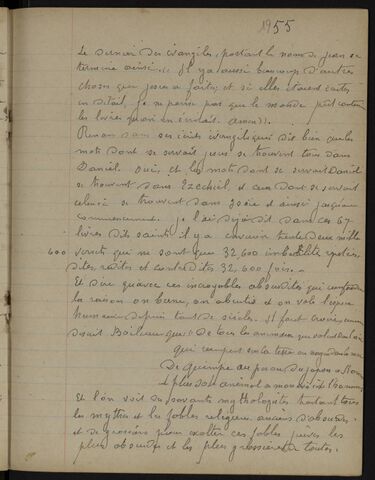 1955
Le dernier des évangiles, portant le nom de jean se
termine ainsi: « Il y a aussi beaucoup d'autres
choses que jesus a faites; et si elles étaient écrites
en détail, je ne pense pas que le monde pût contenir
les livres qu'on en écrirait. amen».
Renan dans ses écrits évangeliques dit bien que les
mots dont se servait jesus se trouvent tous dans
Daniel. Oui, et les mots dont se servait Daniel
se trouvent dans Ezechiel et ceux dont se servait
celui-ci se trouvent dans Isaïe et ainsi jusqu'au
commencement. je l'ai déjà dit dans ces 67
livres dits saints il y a environ trente deux mille
600 versets qui ne sont que 32,600 imbécilités répétées
dites, redites et contredites 32,600 fois.
Et dire qu'avec ces incroyables absurdités qui confondent
la raison on berne, on abrutie et on vole l'espèce
humaine depuis tant de siècles. Il faut croire, comme
disait Boileau que: De tous les animaux qui volent dans l'air
qui rampent sur la terre ou nagent dans la mer
De quimper au perou du japon a Rome
le plus sot animal a mon avis c'est l'homme
Et l'on voit des savants mythologistes traitant tous
les mythes et les fables religieux anciens d'absurdes
et de grossiers pour exalter ces fables juives les
plus absurdes et les plus grossières de toutes.